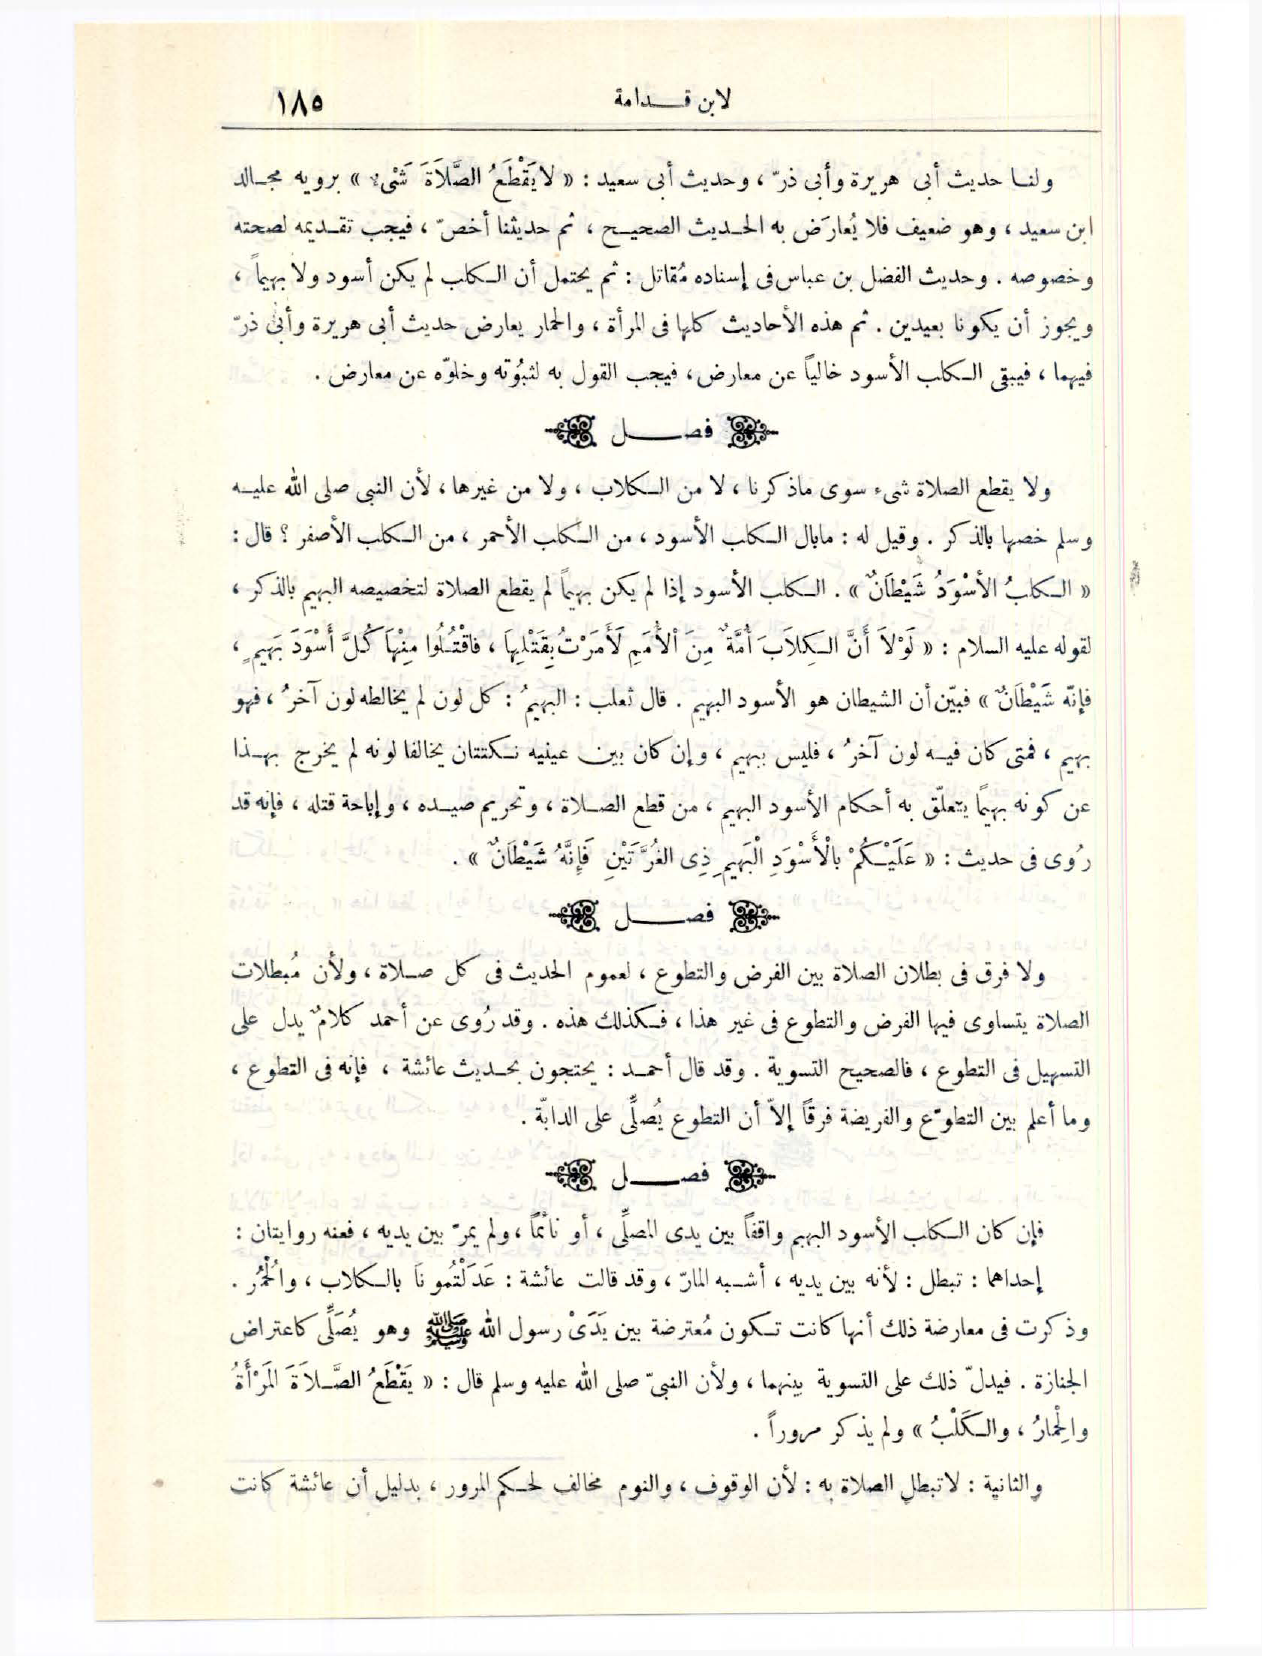 لابن قدامة ١٨٥
ولنا حديث أبى هريرة وأبى ذرّ ، وحديث أبى سعيد : « لا يَقْطَعُ الصَّلَاةَ شَىْء » يرويه مجالد
ابن سعيد ، وهو ضعيف فلا يُعارَض به الحديث الصحيح ، ثم حديثنا أخصّ ، فيجب تقديمه لصحته
وخصوصه . وحديث الفضل بن عباس فى إسناده مُقاتل : ثم يحتمل أن الكلب لم يكن أسود ولا بهيماً ،
ويجوز أن يكونا بعيدين . ثم هذه الأحاديث كلها فى المرأة ، والحمار يعارض حديث أبى هريرة وأبى ذرّ
فيهما ، فيبقى الكلب الأسود خالياً عن معارض ، فيجب القول به لثبوته وخلوّه عن معارض .
فصل
ولا يقطع الصلاة شىء سوى ماذكرنا ، لا من الكلاب ، ولا من غيرها ، لأن النبى صلى الله عليه
وسلم خصها بالذكر . وقيل له : مابال الكلب الأسود ، من الكلب الأحمر ، من الكلب الأصفر ؟ قال :
« الكلبُ الأسْوَدُ شَيْطَانٌ » . الكلب الأسود إذا لم يكن بهيماً لم يقطع الصلاة لتخصيصه البهيم بالذكر ،
لقوله عليه السلام : « لَوْلَا أَنَّ الكِلَابَ أُمَّةٌ مِنَ الْأُمَمِ لَأَمَرْتُ بِقَتْلِهَا ، فَاقْتُلُوا مِنْهَا كُلَّ أَسْوَدَ بَهِيمٍ ،
فإنّه شَيْطَانٌ » فبيّن أن الشيطان هو الأسود البهيم . قال ثعلب : البهيمُ : كل لون لم يخالطه لون آخرُ ، فهو
بهيم ، فمتى كان فيه لون آخرُ ، فليس ببهيم ، وإن كان بين عينيه نكتتان يخالفا لونه لم يخرج بهذا
عن كونه بهيمًا يتعلّق به أحكام الأسود البهيم ، من قطع الصلاة ، وتحريم صيده ، وإباحة قتله ، فإنه قد
رُوى فى حديث : « عَلَيْكُمْ بِالْأَسْوَدِ الْبَهِيمِ ذِى الغُرَّتَيْنِ فَإِنَّهُ شَيْطَانٌ » .
فصل
ولا فرق فى بطلان الصلاة بين الفرض والتطوع ، لعموم الحديث فى كل صلاة ، ولأن مُبطلات
الصلاة يتساوى فيها الفرض والتطوع فى غير هذا ، فكذلك هذه . وقد رُوى عن أحمد كلامٌ يدل على
التسهيل فى التطوع ، فالصحيح التسوية . وقد قال أحمد : يحتجون بحديث عائشة ، فإنه فى التطوع ،
وما أعلم بين التطوّع والفريضة فرقًا إلاّ أن التطوع يُصلَّى على الدابّة .
فصل
فإن كان الكلب الأسود البهيم واقفاً بين يدى المصلِّى ، أو نائمًا ، ولم يمرّ بين يديه ، فعنه روايتان :
إحداهما : تبطل : لأنه بين يديه ، أشبه المارّ ، وقد قالت عائشة : عَدَلْتُمُونَا بالكلاب ، والْحُمُر .
وذكرت فى معارضة ذلك أنها كانت تكون مُعترضة بين يَدَىْ رسول الله ﷺ وهو يُصَلِّى كاعتراض
الجنازة . فيدلّ ذلك على التسوية بينهما ، ولأن النبىّ صلى الله عليه وسلم قال : « يَقْطَعُ الصَّلَاةَ المَرْأَةُ
والْحِمَارُ ، والكَلْبُ » ولم يذكر مروراً .
والثانية : لاتبطل الصلاة به : لأن الوقوف ، والنوم مخالف لحكم المرور ، بدليل أن عائشة كانت